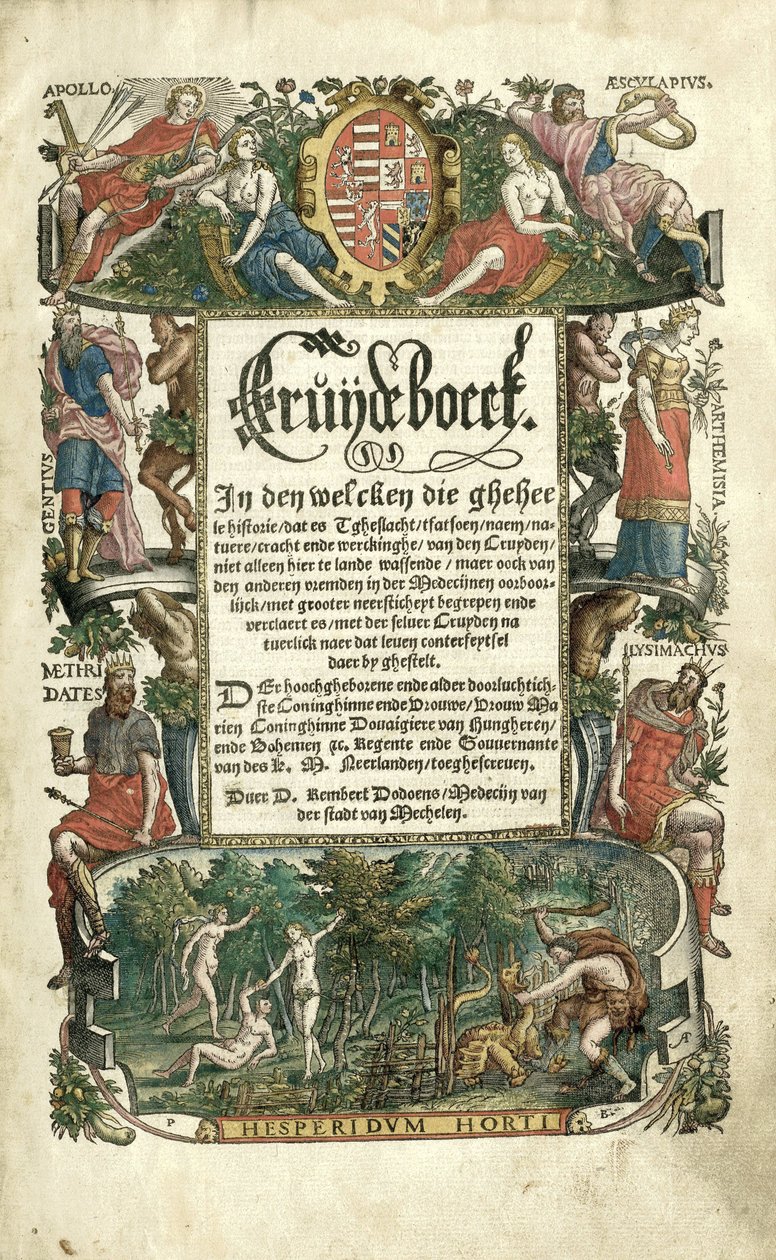 APOLLO.
ÆSCULAPIVS.
Cruÿdeboeck.
In den welcken die ghehee
le historie/dat es Tgheslacht/tfatsoen/naem/na-
tuere/cracht ende werckinghe/van den Cruyden/
niet alleen hier te lande wassende/maer oock van
den anderen vremden in der Medecijnen oorboor-
lijck/met grooter neersticheyt begrepen ende
verclaert es/met der seluer Cruyden na
tuerlick naer dat leuen conterfeytsel
daer by ghestelt.
DEr hoochgheborene ende alder doorluchtich-
ste Coninghinne ende Vrouwe/Vrouw Ma
rien Coninghinne Douaigiere van Hungheren/
ende Bohemen ꝛc. Regente ende Gouuernante
van des K. M. Neerlanden/toeghescreuen.
Duer D. Rembert Dodoens/Medecijn van
der stadt van Mechelen.
GENTIVS
ARTHEMISIA
METHRI
DATES
LYSIMACHVS
A
P
B
HESPERIDVM HORTI